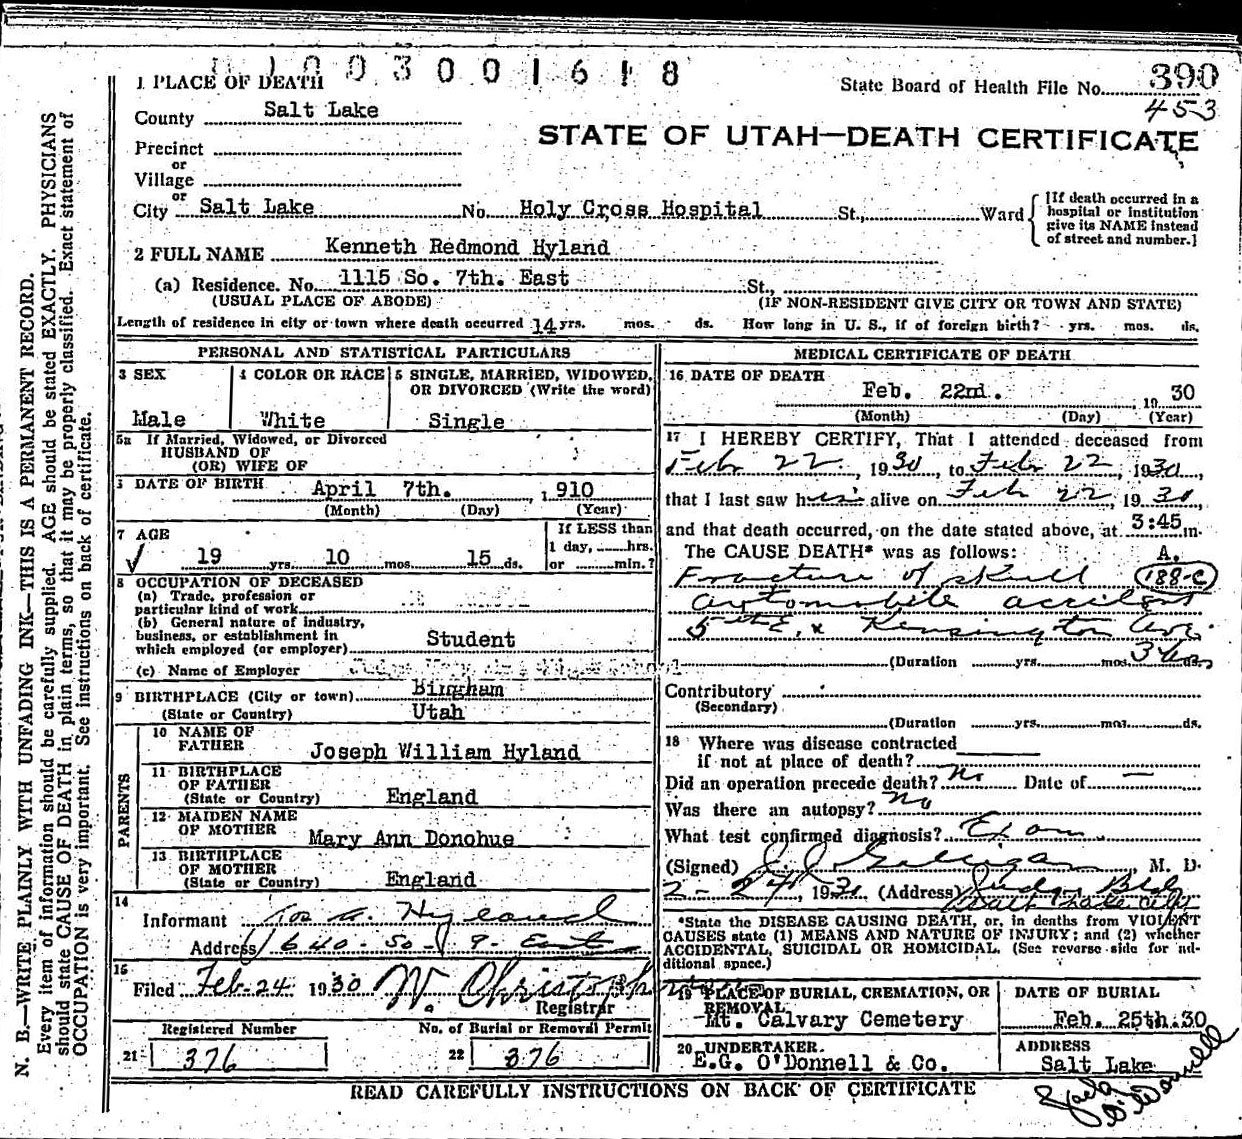 1003001618
1 PLACE OF DEATH
State Board of Health File No. 390
453
County Salt Lake
STATE OF UTAH—DEATH CERTIFICATE
Precinct
or
Village
or
City Salt Lake No. Holy Cross Hospital St., Ward
[If death occurred in a
hospital or institution
give its NAME instead
of street and number.]
2 FULL NAME Kenneth Redmond Hyland
(a) Residence. No. 1115 So. 7th. East St.,
(USUAL PLACE OF ABODE) (IF NON-RESIDENT GIVE CITY OR TOWN AND STATE)
Length of residence in city or town where death occurred 14 yrs. mos. ds. How long in U. S., if of foreign birth? yrs. mos. ds.
PERSONAL AND STATISTICAL PARTICULARS
3 SEX
Male
4 COLOR OR RACE
White
5 SINGLE, MARRIED, WIDOWED,
OR DIVORCED (Write the word)
Single
5a If Married, Widowed, or Divorced
HUSBAND OF
(OR) WIFE OF
DATE OF BIRTH April 7th. , 1910
(Month) (Day) (Year)
7 AGE
19 yrs. 10 mos. 15 ds.
If LESS than
1 day, hrs.
or min.?
8 OCCUPATION OF DECEASED
(a) Trade, profession or
particular kind of work
(b) General nature of industry,
business, or establishment in
which employed (or employer) Student
(c) Name of Employer
9 BIRTHPLACE (City or town) Bingham
(State or Country) Utah
PARENTS
10 NAME OF
FATHER Joseph William Hyland
11 BIRTHPLACE
OF FATHER
(State or Country) England
12 MAIDEN NAME
OF MOTHER Mary Ann Donohue
13 BIRTHPLACE
OF MOTHER
(State or Country) England
14
Informant Jos A. Hyland
Address 640-So-9-East
15
Filed Feb-24 1930 W. Christoph
Registrar
Registered Number
21 376
No. of Burial or Removal Permit
22 376
MEDICAL CERTIFICATE OF DEATH
16 DATE OF DEATH
Feb. 22nd. 19 30
(Month) (Day) (Year)
17 I HEREBY CERTIFY, That I attended deceased from
Feb 22, 1930, to Feb 22, 1930,
that I last saw him alive on Feb 22, 1930,
and that death occurred, on the date stated above, at 3:45 m.
The CAUSE DEATH* was as follows: A.
Fracture of skull 188-C
automobile accident
5th E, x Kensington Ave.
(Duration yrs. mos. 3 hrs ds.
Contributory
(Secondary)
(Duration yrs. mos. ds.
18 Where was disease contracted
if not at place of death?
Did an operation precede death? No Date of —
Was there an autopsy? No
What test confirmed diagnosis? Exam
(Signed) J J Galligan, M. D.
2-24, 1930 (Address) Judge Bldg
Salt Lake City
*State the DISEASE CAUSING DEATH, or, in deaths from VIOLENT
CAUSES state (1) MEANS AND NATURE OF INJURY; and (2) whether
ACCIDENTAL, SUICIDAL OR HOMICIDAL. (See reverse side for ad-
ditional space.)
19 PLACE OF BURIAL, CREMATION, OR
REMOVAL
Mt. Calvary Cemetery
DATE OF BURIAL
Feb. 25th. 30
20 UNDERTAKER.
E.G. O'Donnell & Co.
ADDRESS
Salt Lake
O'Donnell
READ CAREFULLY INSTRUCTIONS ON BACK OF CERTIFICATE
N. B.—WRITE PLAINLY WITH UNFADING INK—THIS IS A PERMANENT RECORD.
Every item of information should be carefully supplied. AGE should be stated EXACTLY. PHYSICIANS
should state CAUSE OF DEATH in plain terms, so that it may be properly classified. Exact statement of
OCCUPATION is very important. See instructions on back of certificate.